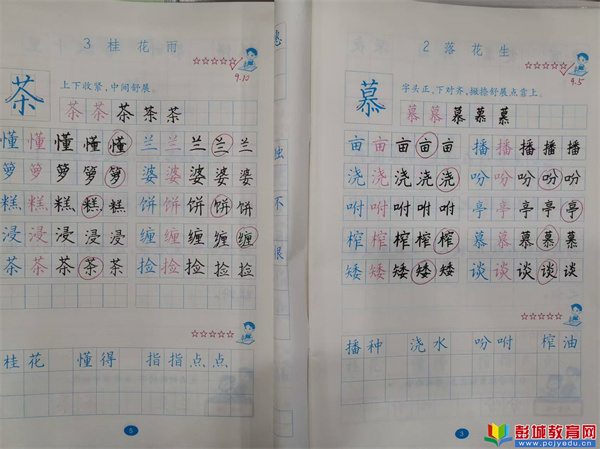 3 桂花雨
☆☆☆☆☆
9.10
茶 上下收紧,中间舒展。
茶 茶 茶 茶 茶
懂 懂 懂 懂 懂 兰 兰 兰 兰 兰
箩 箩 箩 箩 箩 婆 婆 婆 婆 婆
糕 糕 糕 糕 糕 饼 饼 饼 饼 饼
浸 浸 浸 浸 浸 缠 缠 缠 缠 缠
茶 茶 茶 茶 茶 捡 捡 捡 捡 捡
☆☆☆☆☆
桂花 懂得 指指点点
5
2 落花生
☆☆☆☆☆
9.5
慕 字头正、下对齐,撇捺舒展点靠上。
慕 慕 慕 慕 慕
亩 亩 亩 亩 亩 播 播 播 播 播
浇 浇 浇 浇 浇 吩 吩 吩 吩 吩
咐 咐 咐 咐 咐 亭 亭 亭 亭 亭
榨 榨 榨 榨 榨 慕 慕 慕 慕 慕
矮 矮 矮 矮 矮 谈 谈 谈 谈 谈
☆☆☆☆☆
播种 浇水 吩咐 榨油
3
彭城教育网
www.pcjyedu.cn